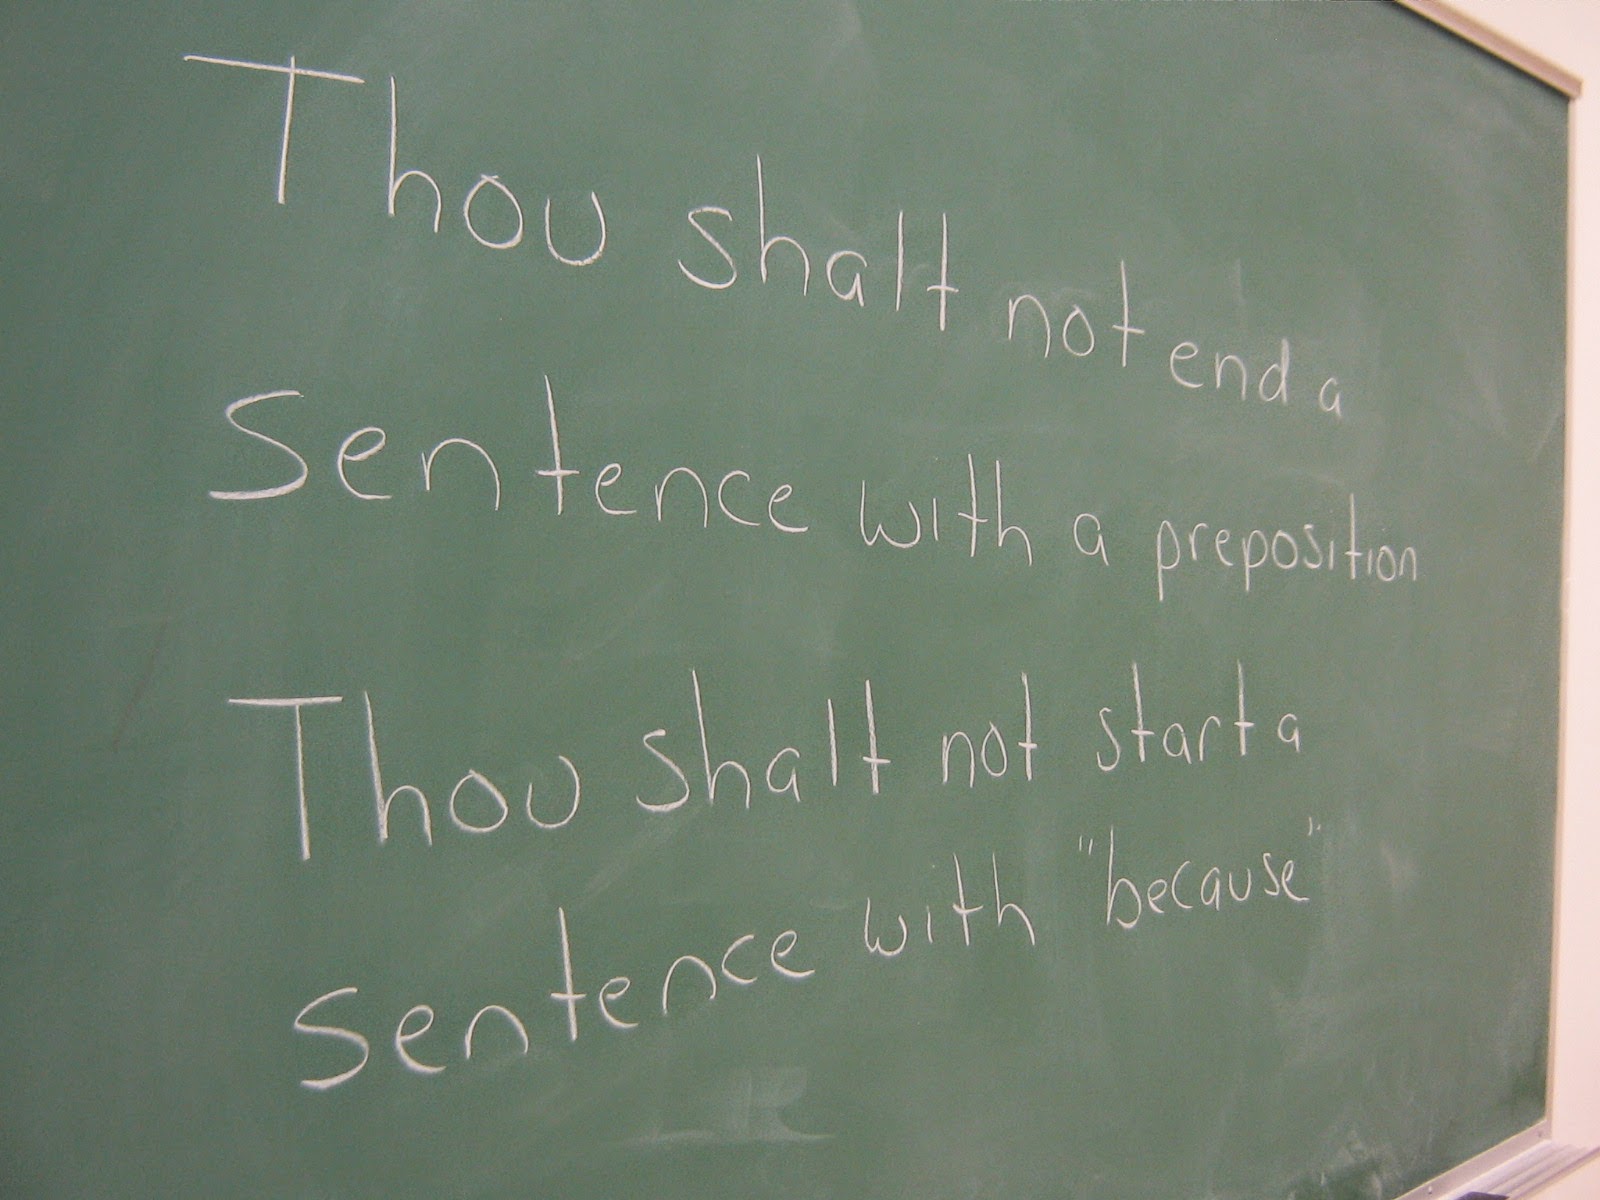 Thou shalt not end a
Sentence with a preposition
Thou shalt not start a
sentence with "because"